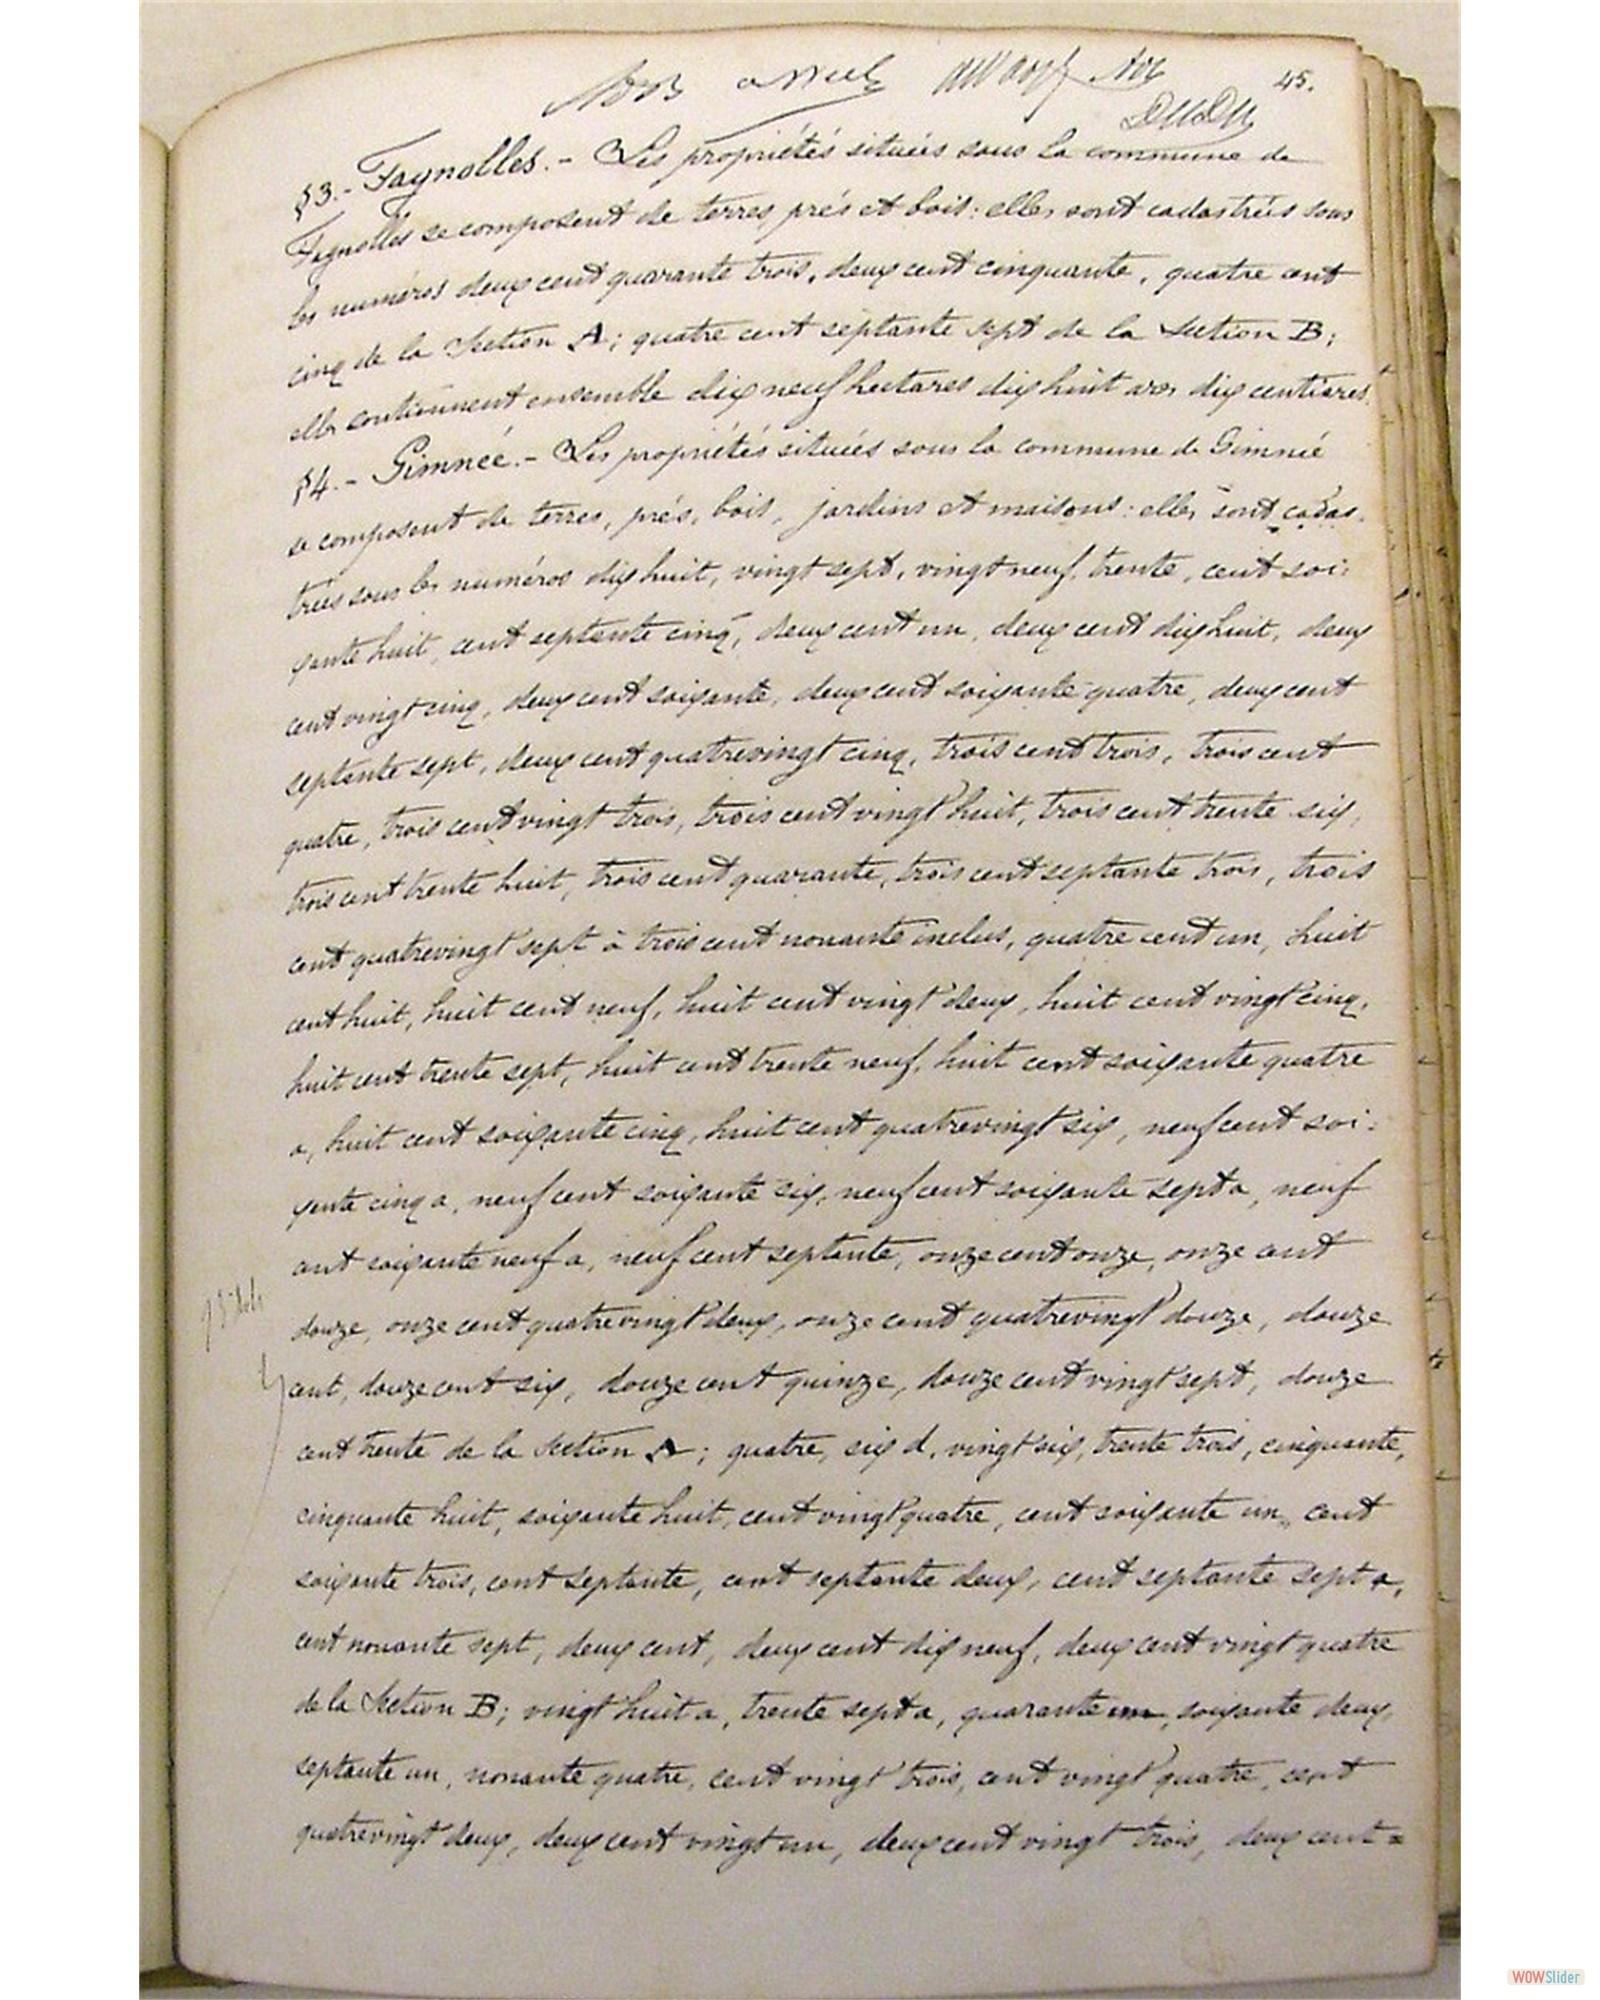 45.
§3.- Fagnolles. - Les propriétés situées sous la commune de
Fagnolles se composent de terres, prés et bois: elles sont cadastrées sous
les numéros deux cent quarante trois, deux cent cinquante, quatre cent
cinq de la Section A; quatre cent septante sept de la Section B;
elles contiennent ensemble dix neuf hectares dix huit ares dix centiares.
§4.- Gimnée. - Les propriétés situées sous la commune de Gimnée
se composent de terres, prés, bois, jardins et maisons: elles sont cadas-
trées sous les numéros dix huit, vingt sept, vingt neuf, trente, cent soi-
xante huit, cent septante cinq, deux cent un, deux cent dix huit, deux
cent vingt cinq, deux cent soixante, deux cent soixante quatre, deux cent
septante sept, deux cent quatrevingt cinq, trois cent trois, trois cent
quatre, trois cent vingt trois, trois cent vingt huit, trois cent trente six,
trois cent trente huit, trois cent quarante, trois cent septante trois, trois
cent quatrevingt sept à trois cent nonante inclus, quatre cent un, huit
cent huit, huit cent neuf, huit cent vingt deux, huit cent vingt cinq,
huit cent trente sept, huit cent trente neuf, huit cent soixante quatre
a, huit cent soixante cinq, huit cent quatrevingt six, neuf cent soi-
xante cinq a, neuf cent soixante six, neuf cent soixante sept a, neuf
cent soixante neuf a, neuf cent septante, onze cent onze, onze cent
douze, onze cent quatrevingt deux, onze cent quatrevingt douze, douze
cent, douze cent six, douze cent quinze, douze cent vingt sept, douze
cent trente de la Section A; quatre, six d, vingt six, trente trois, cinquante,
cinquante huit, soixante huit, cent vingt quatre, cent soixante un, cent
soixante trois, cent septante, cent septante deux, cent septante sept a,
cent nonante sept, deux cent, deux cent dix neuf, deux cent vingt quatre
de la Section B; vingt huit a, trente sept a, quarante un, soixante deux,
septante un, nonante quatre, cent vingt trois, cent vingt quatre, cent
quatrevingt deux, deux cent vingt un, deux cent vingt trois, deux cent =
WOWSlider